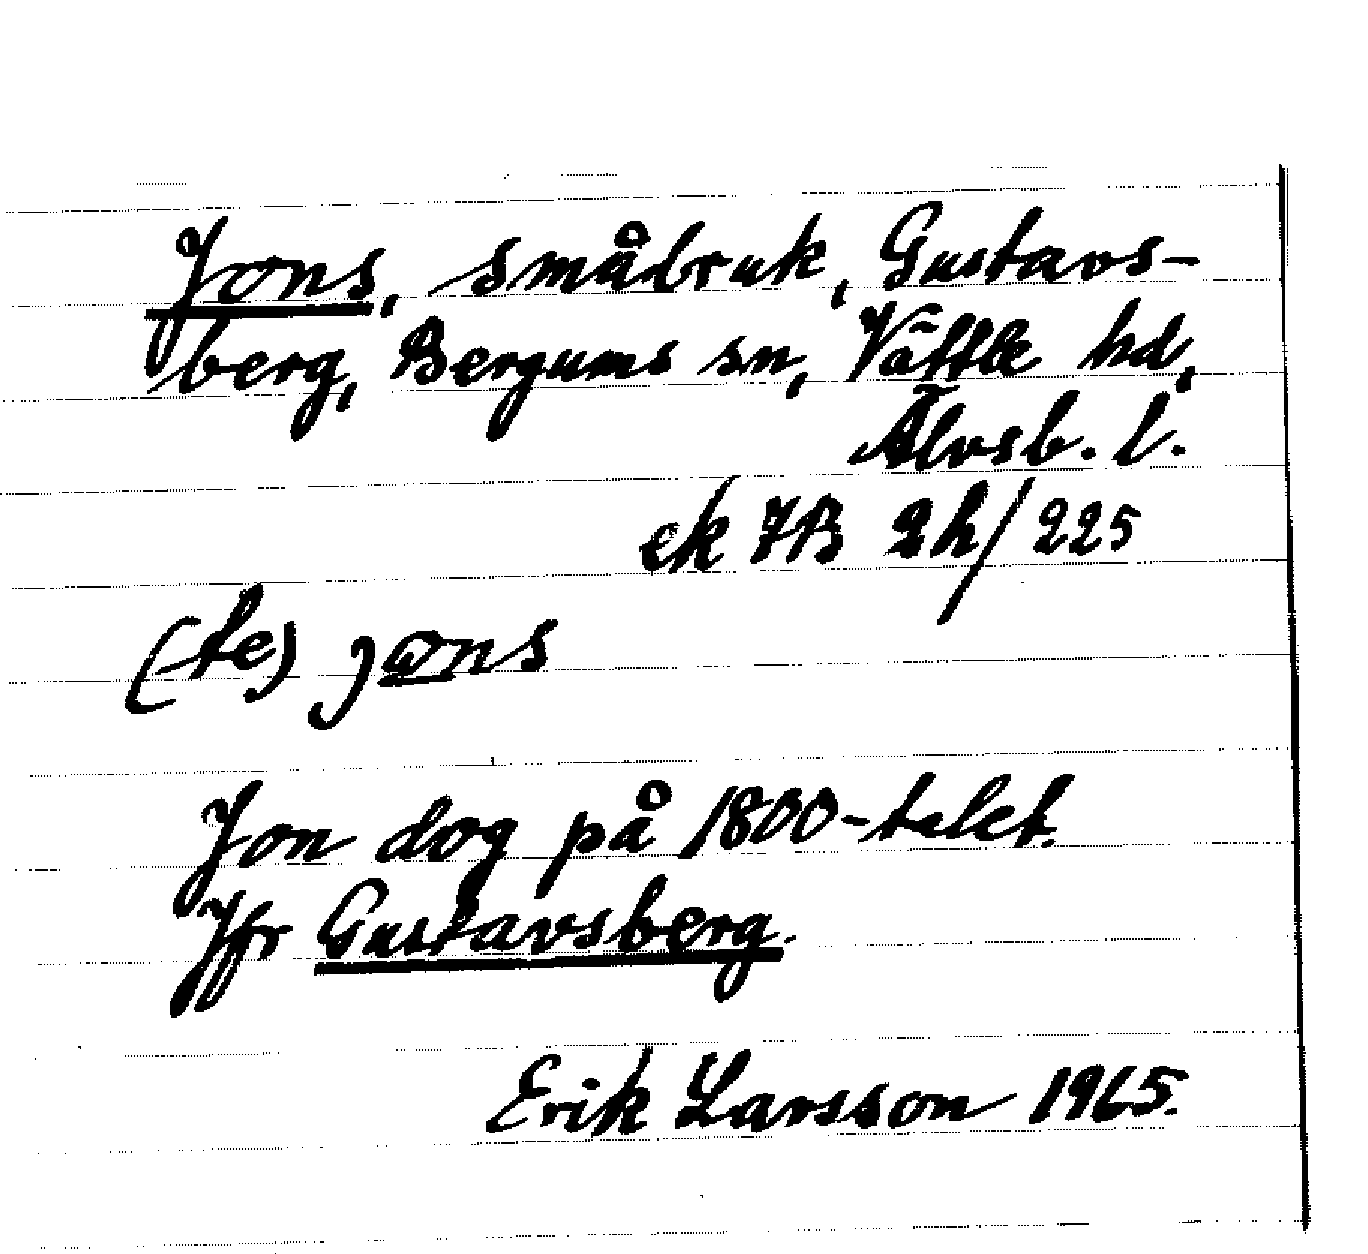 Jons, småbruk, Gustavs-
berg, Bergums sn, Vättle hd,
Älvsb. l.
ek 7B 2h/225
(te) jons
Jon dog på 1800-talet.
Jfr Gustavsberg.
Erik Larsson 1965.